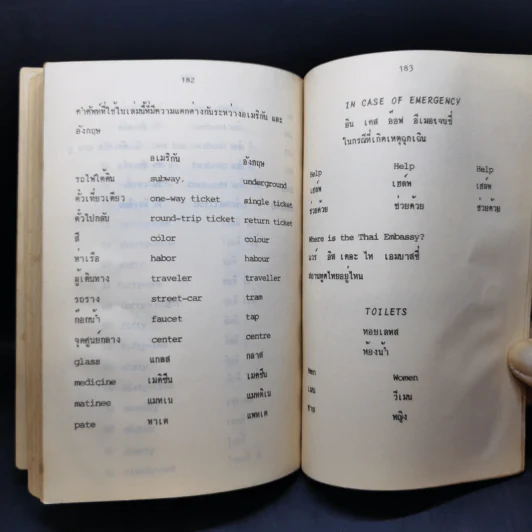 182
คำศัพท์ที่ใช้ในเล่มนี้ที่มีความแตกต่างกันระหว่างอเมริกัน และ
อังกฤษ
อเมริกัน อังกฤษ
รถไฟใต้ดิน subway. underground
ตั๋วเที่ยวเดียว one-way ticket single ticket
ตั๋วไปกลับ round-trip ticket return ticket
สี color colour
ท่าเรือ habor habour
ผู้เดินทาง traveler traveller
รถราง street-car tram
ก๊อกน้ำ faucet tap
จุดศูนย์กลาง center centre
glass แกลส กลาส
medicine เมดิซีน เมดซีน
matinee แมทเน แมทติเน
pate พาเต แพทเต
183
IN CASE OF EMERGENCY
อิน เคส อ๊อฟ อีเมอเจนซี่
ในกรณีที่เกิดเหตุฉุกเฉิน
Help Help Help
เฮ้ลพ เฮ้ลพ เฮ้ลพ
ช่วยด้วย ช่วยด้วย ช่วยด้วย
Where is the Thai Embassy?
แวร์ อิส เดอะ ไท เอมบาสซี่
สถานทูตไทยอยู่ไหน
TOILETS
ทอยเลทส
ห้องน้ำ
Men Women
เมน วีเมน
ชาย หญิง